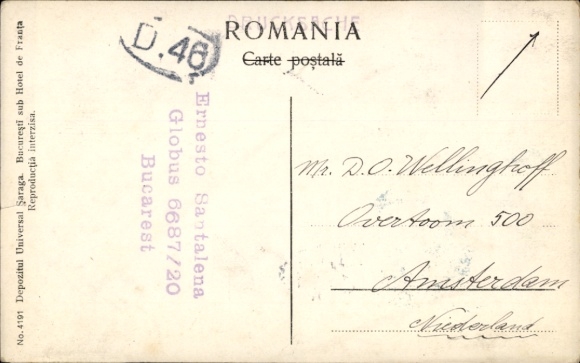 DRUCKSACHE
ROMANIA
Carte poștală
D. 46
Ernesto Santalena
Globus 6687/20
Bucarest
Mr. D. O. Wellinghoff
Overtoom 500
Amsterdam
Niederland
No. 4191 Depozitul Universal Șaraga. București sub Hotel de Franța
Reproducția interzisa.